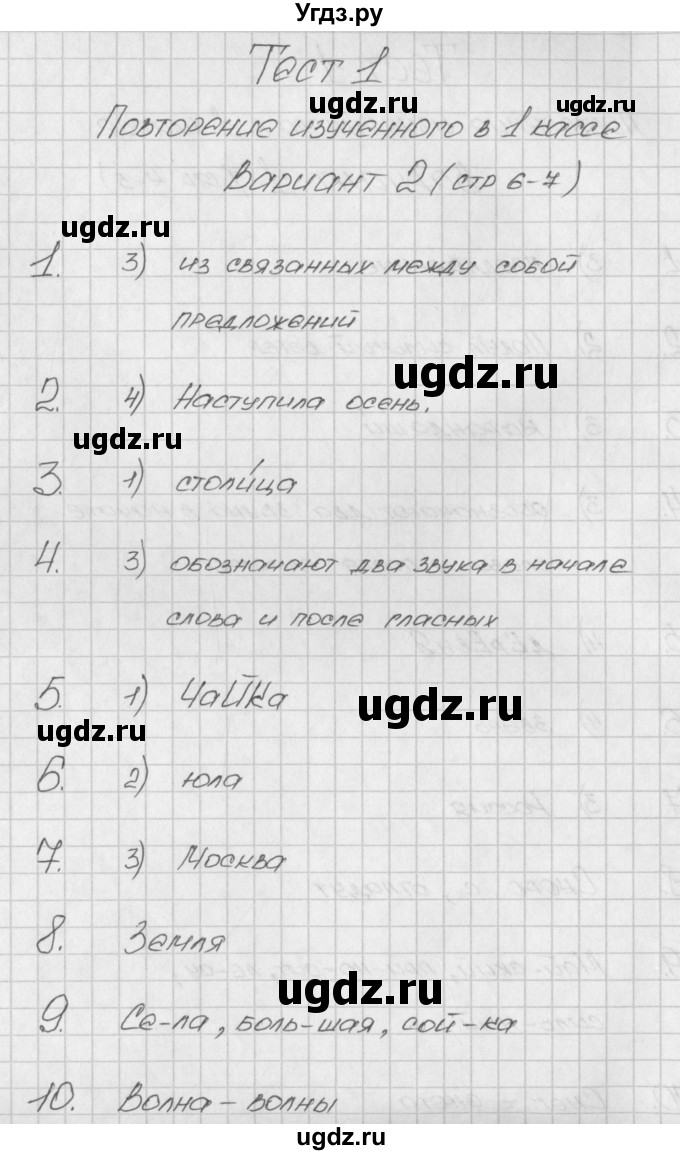 Угдз.ру
Тест 1
ugdz.ru ugdz.ru
Повторение изученного в 1 классе
Вариант 2 (стр 6-7)
ugdz.ru
1. 3) из связанных между собой
предложений
ugdz.ru
2. 4) Наступила осень.
ugdz.ru
3. 1) столи́ца
4. 3) обозначают два звука в начале
слова и после гласных
5. 1) Чайка
ugdz.ru
ugdz.ru
6. 2) юла
7. 3) Москва
8. Земля
ugdz.ru
9. Се-ла, боль-шая, сой-ка
10. Волна - волны
ugdz.ru